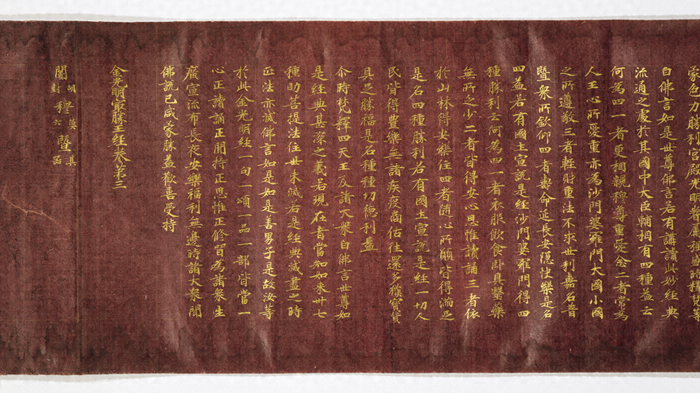 白佛言如是世尊佛言若有講讀此妙經典
流通之處於其國中大臣輔相有四種益云
何為四一者更相親穆尊重愛念二者常為
人王心所愛重亦為沙門婆羅門大國小國
之所遵敬三者輕財重法不求世利嘉名普
暨衆所欽仰四者壽命延長安隱快樂是名
四益若有國土宣說是經沙門婆羅門得四
種勝利云何為四一者衣服飲食卧具醫藥
無所乏少二者皆得安心思惟讀誦三者依
於山林得安樂住四者隨心所願皆得滿足
是名四種勝利若有國土宣說是經一切人
民皆得豐樂無諸疾疫商估往還多獲寶貨
具足勝福是名種種功德利益
尒時梵釋四天王及諸大衆白佛言世尊如
是經典甚深之義若現在者當知如來卅七
種助菩提法住世未滅若是經典滅盡之時
正法亦滅佛言如是如是善男子是故汝等
於此金光明經一句一頌一品一部皆當一
心正讀誦正聞持正思惟正修習為諸衆生
廣宣流布長夜安樂福利無邊時諸大衆聞
佛說已咸蒙勝益歡喜受持
金光明最勝王經卷第三
穆莫六暨其